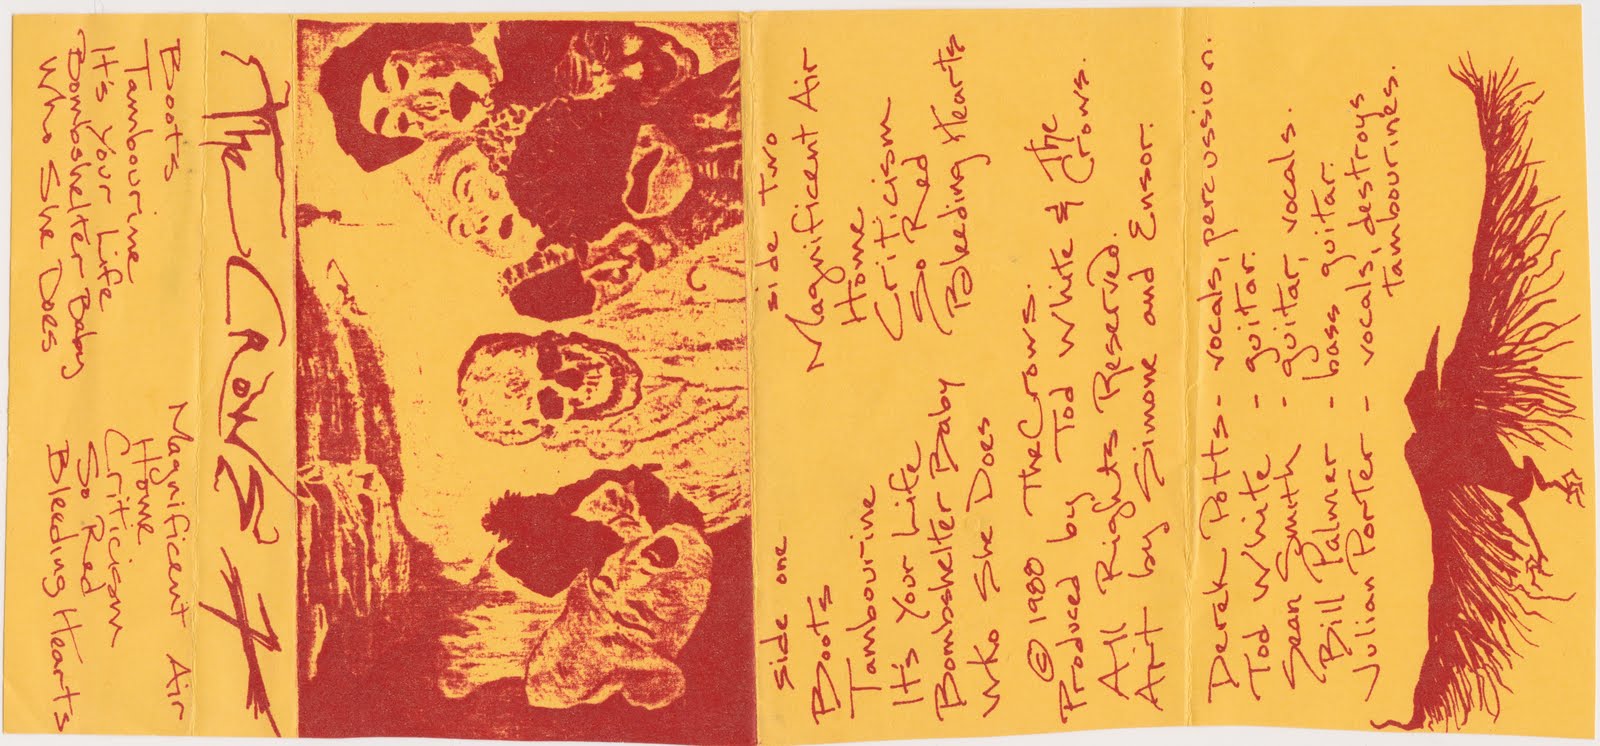 The Crows
Boots
Tambourine
It's Your Life
Bombshelter Baby
Who She Does
Magnificent Air
Home
Criticism
So Red
Bleeding Hearts
side one
Boots
Tambourine
It's Your Life
Bombshelter Baby
Who She Does
side two
Magnificent Air
Home
Criticism
So Red
Bleeding Hearts
© 1988 The Crows.
Produced by Tod White & The Crows.
All Rights Reserved.
Art by Simone and Ensor.
Derek Potts - vocals, percussion.
Tod White - guitar.
Sean Smith - guitar, vocals.
Bill Palmer - bass guitar.
Julian Porter - vocals, destroys
tambourines.